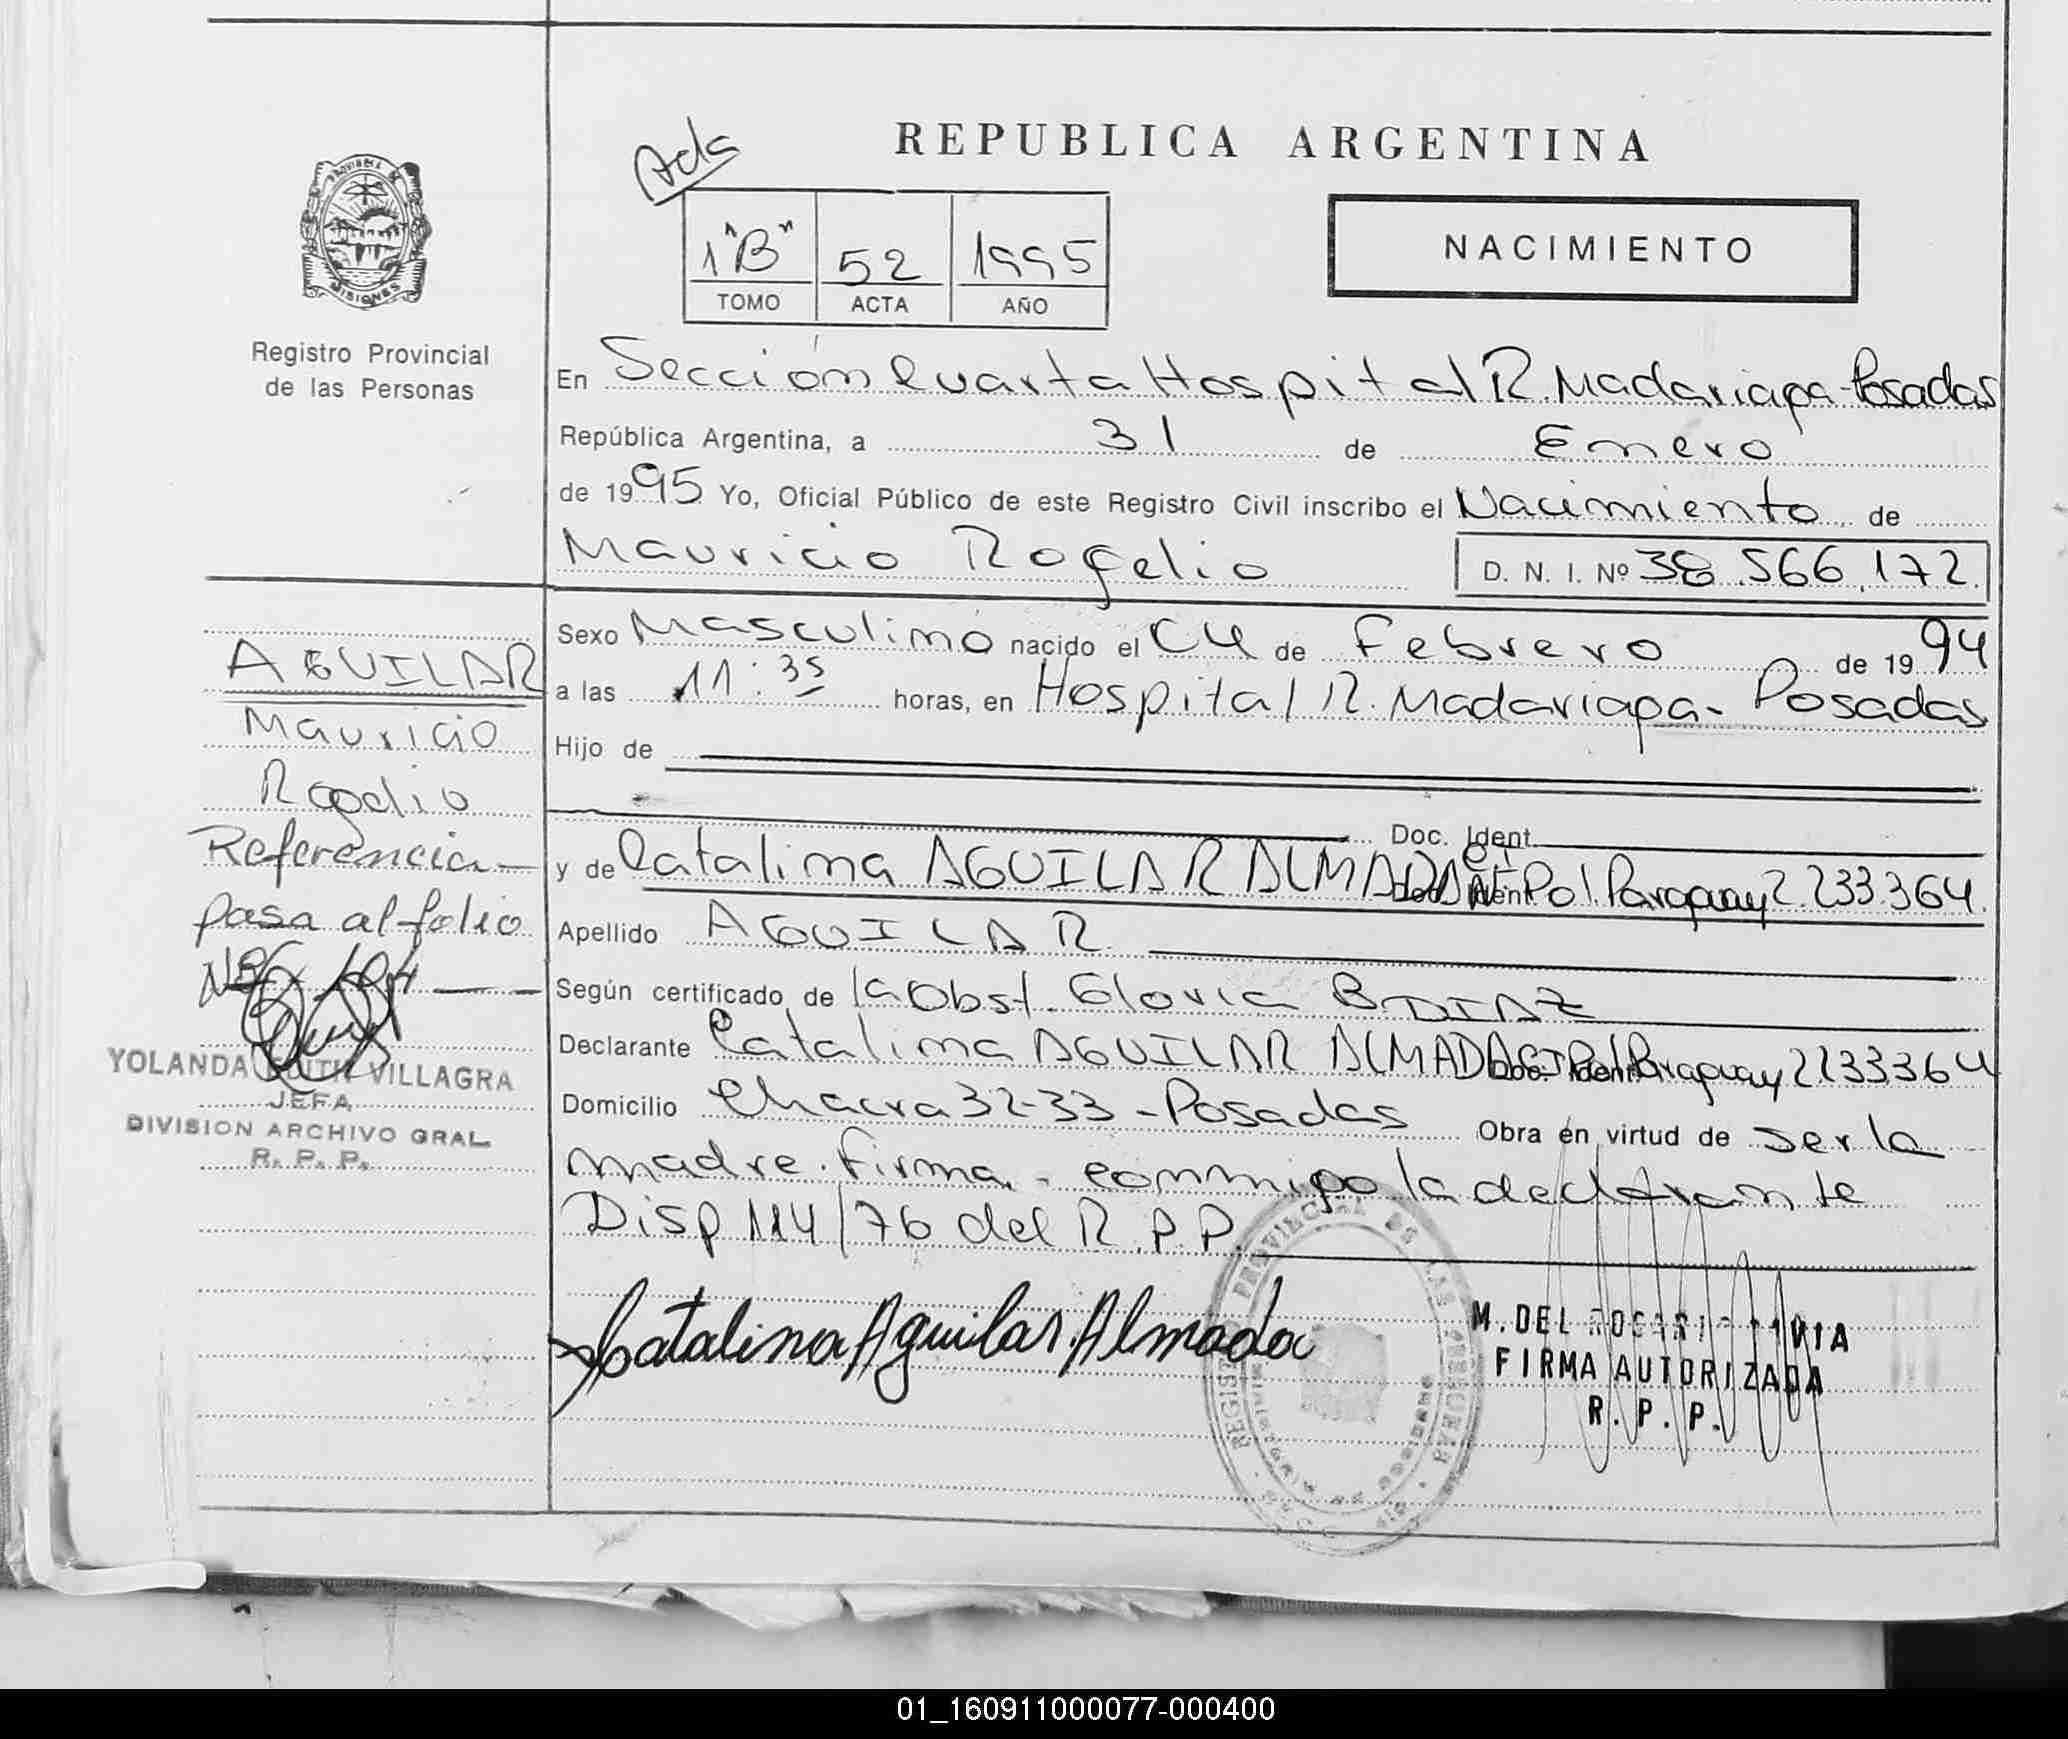 REPUBLICA ARGENTINA
Acta
1"B" 52 1995
TOMO ACTA AÑO
NACIMIENTO
PROVINCIA DE MISIONES
Registro Provincial
de las Personas
En Sección Cuarta Hospital R. Madariaga - Posadas
República Argentina, a 31 de Enero
de 1995 Yo, Oficial Público de este Registro Civil inscribo el Nacimiento de
Mauricio Rogelio D. N. I. Nº 38.566.172.
Sexo Masculino nacido el 04 de Febrero de 1994
a las 11:35 horas, en Hospital R. Madariaga - Posadas
Hijo de
Doc. Ident.
y de Catalina AGUILAR ALMADA Doc. Ident. C.I. Pol. Paraguay 2.233.364.
Apellido AGUILAR
Según certificado de la Obst. Gloria B. DIAZ
Declarante Catalina AGUILAR ALMADA Doc. Ident. C.I. Pol. Paraguay 2233364
Domicilio Chacra 32-33 - Posadas Obra en virtud de ser la
madre. Firma. - conmigo la declarante
Disp 114/76 del R.P.P.
Catalina Aguilar Almada
M. DEL ROSARIO
FIRMA AUTORIZADA
R. P. P.
REGISTRO PROVINCIAL DE LAS PERSONAS
AGUILAR
Mauricio
Rogelio
Referencia -
pasa al folio
Nº
YOLANDA EDITH VILLAGRA
JEFA
DIVISION ARCHIVO GRAL.
R. P. P.
01_160911000077-000400